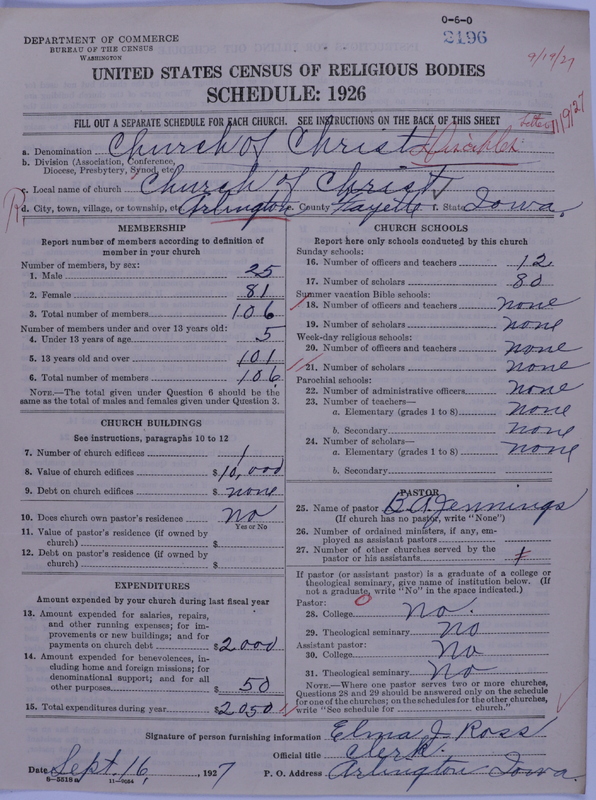 O-6-0
DEPARTMENT OF COMMERCE
BUREAU OF THE CENSUS
WASHINGTON
2196
9/19/27
UNITED STATES CENSUS OF RELIGIOUS BODIES
SCHEDULE: 1926
FILL OUT A SEPARATE SCHEDULE FOR EACH CHURCH. SEE INSTRUCTIONS ON THE BACK OF THIS SHEET
a. Denomination Church of Christ Disciples
b. Division (Association, Conference,
Diocese, Presbytery, Synod, etc.)
c. Local name of church Church of Christ
d. City, town, village, or township, etc. Arlington e. County Fayette f. State Iowa.
MEMBERSHIP
Report number of members according to definition of
member in your church
Number of members, by sex:
1. Male 25
2. Female 81
3. Total number of members 106
Number of members under and over 13 years old:
4. Under 13 years of age 5
5. 13 years old and over 101
6. Total number of members 106
NOTE.—The total given under Question 6 should be the
same as the total of males and females given under Question 3.
CHURCH BUILDINGS
See instructions, paragraphs 10 to 12
7. Number of church edifices 1
8. Value of church edifices $10,000
9. Debt on church edifices $none
10. Does church own pastor's residence no
Yes or No
11. Value of pastor's residence (if owned by
church) $
12. Debt on pastor's residence (if owned by
church) $
EXPENDITURES
Amount expended by your church during last fiscal year
13. Amount expended for salaries, repairs,
and other running expenses; for im-
provements or new buildings; and for
payments on church debt $2000
14. Amount expended for benevolences, in-
cluding home and foreign missions; for
denominational support; and for all
other purposes $50
15. Total expenditures during year $2050
CHURCH SCHOOLS
Report here only schools conducted by this church
Sunday schools:
16. Number of officers and teachers 12
17. Number of scholars 80
Summer vacation Bible schools:
18. Number of officers and teachers none
19. Number of scholars none
Week-day religious schools:
20. Number of officers and teachers none
21. Number of scholars none
Parochial schools:
22. Number of administrative officers none
23. Number of teachers—
a. Elementary (grades 1 to 8) none
b. Secondary none
24. Number of scholars—
a. Elementary (grades 1 to 8) none
b. Secondary
PASTOR
25. Name of pastor B. A. Jennings
(If church has no pastor, write "None")
26. Number of ordained ministers, if any, em-
ployed as assistant pastors
27. Number of other churches served by the
pastor or his assistants
If pastor (or assistant pastor) is a graduate of a college or
theological seminary, give name of institution below. (If
not a graduate, write "No" in the space indicated.)
Pastor:
28. College no.
29. Theological seminary no
Assistant pastor:
30. College No
31. Theological seminary No
NOTE.—Where one pastor serves two or more churches,
Questions 28 and 29 should be answered only on the schedule
for one of the churches; on the schedules for the other churches,
write "See schedule for church."
Signature of person furnishing information Elma J. Ross
Official title Clerk.
Date Sept. 16, 1927 P. O. Address Arlington Iowa.
8-5518a 11-9064